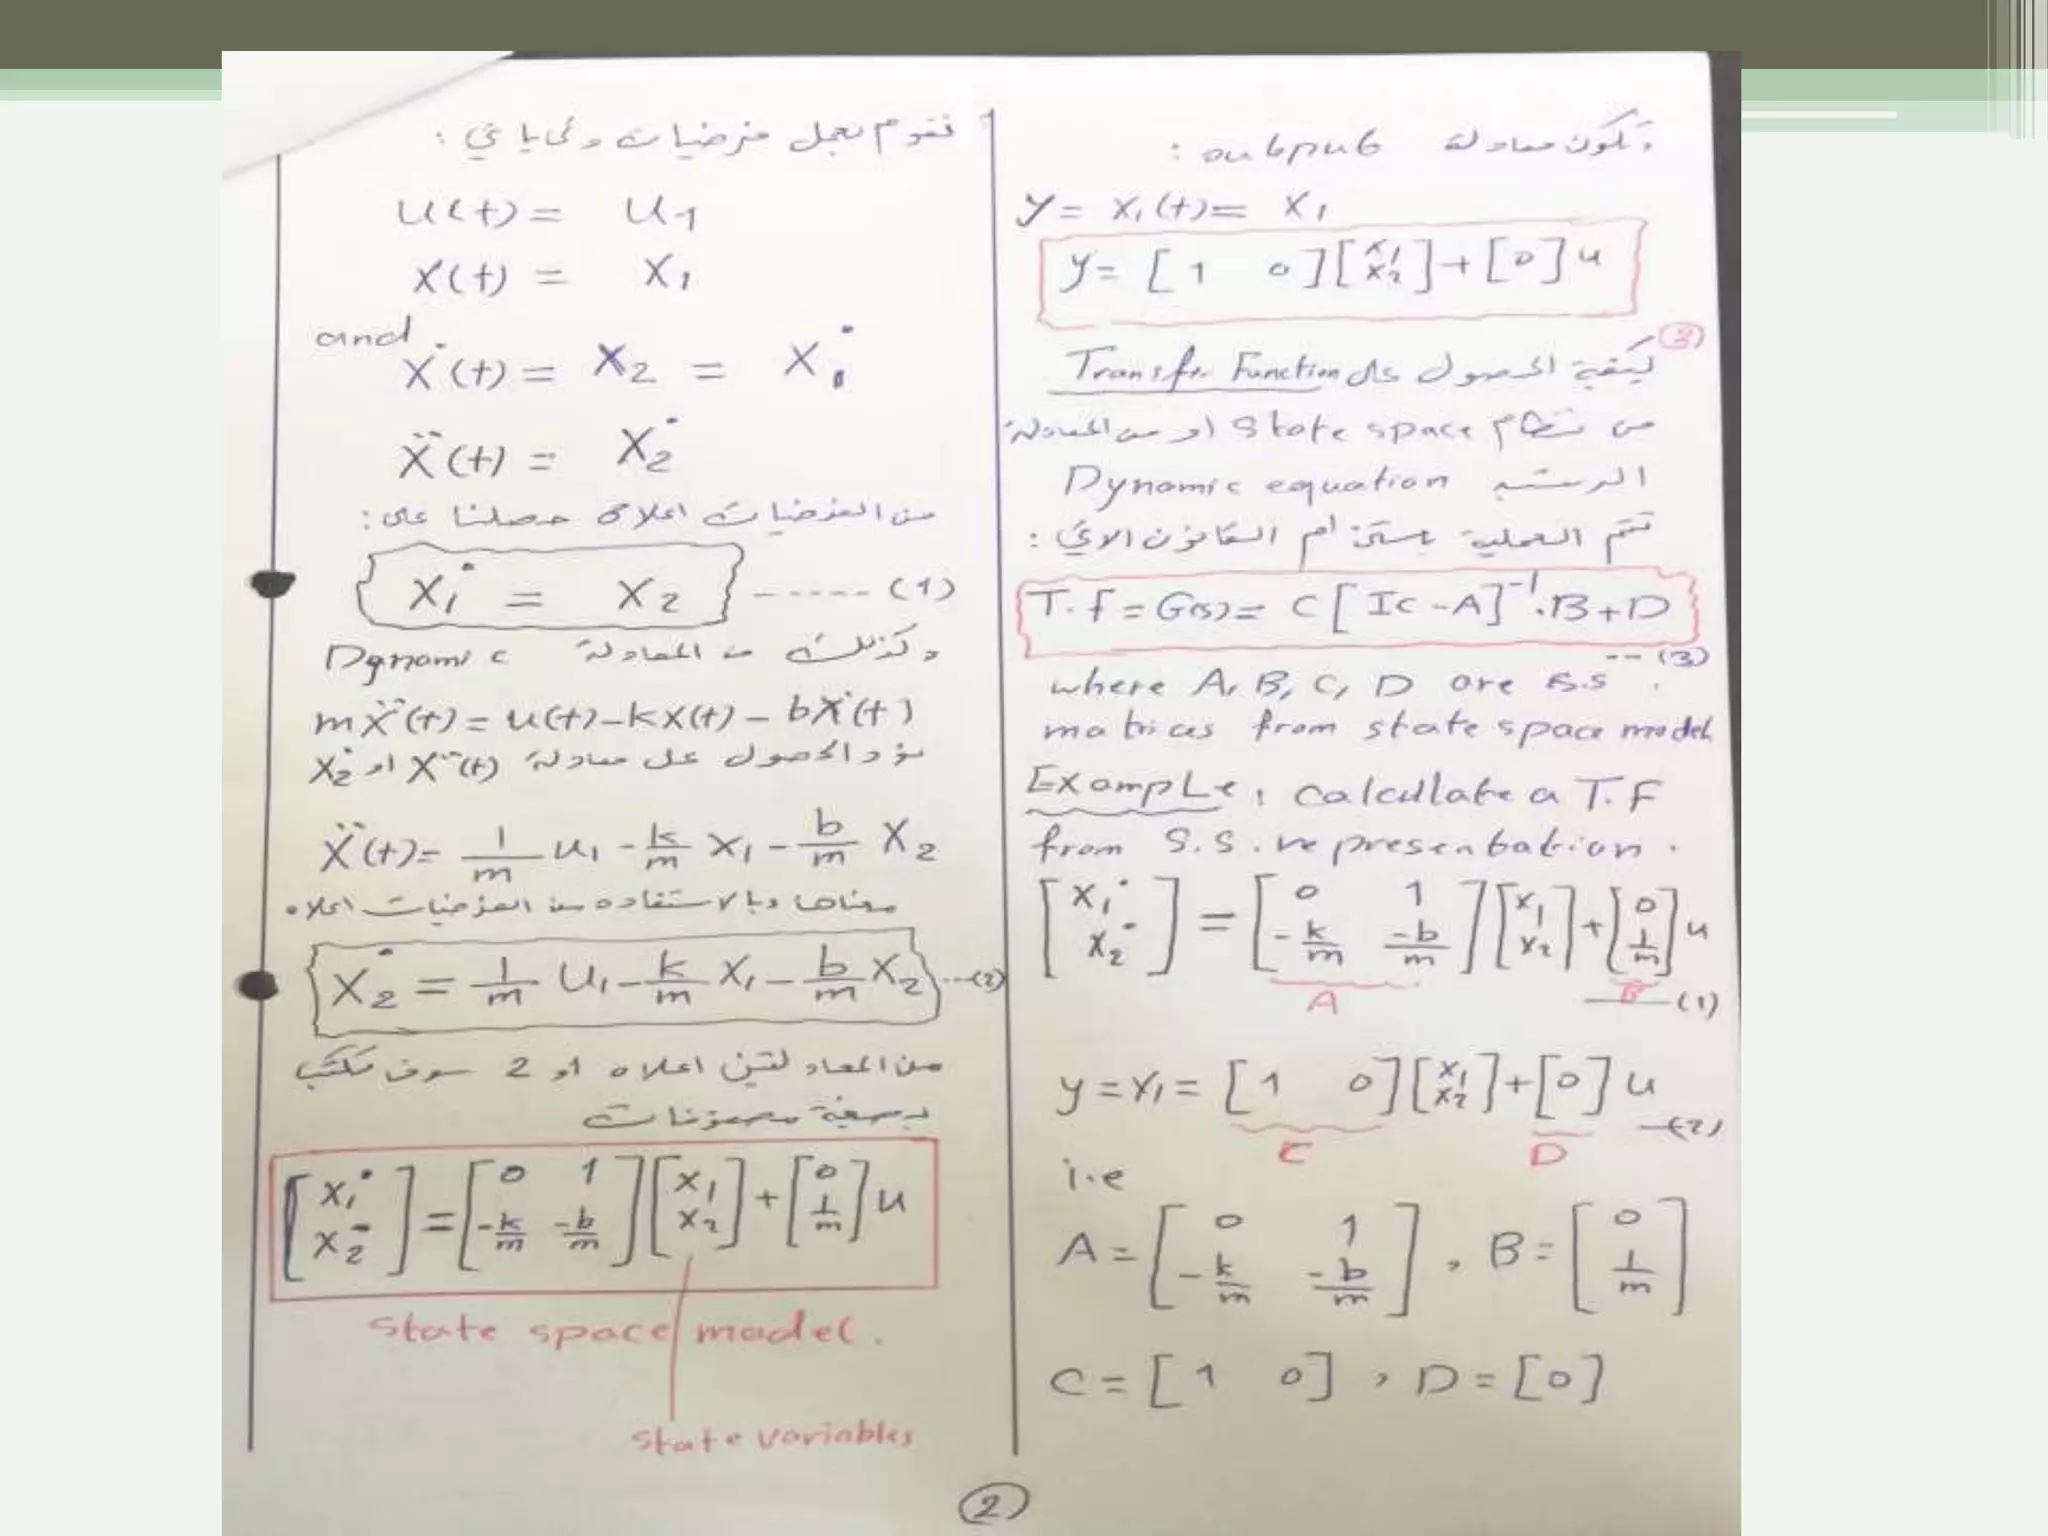 فنقوم بعمل فرضيات وكما يأتي :
u(t) = u1
x(t) = x1
and
ẋ(t) = x2 = ẋ1
ẍ(t) = ẋ2
من الفرضيات اعلاه حصلنا على :
ẋ1 = x2 ------ (1)
وكذلك من المعادلة Dynamic
mẍ(t) = u(t) - kx(t) - bẋ(t)
نود الحصول على معادلة ẍ(t) او ẋ2
ẍ(t) = 1/m u1 - k/m x1 - b/m x2
معناها وبالاستفاده من الفرضيات اعلاه
ẋ2 = 1/m u1 - k/m x1 - b/m x2 ---(2)
من المعادلتين اعلاه 1و 2 سوف نكتب
بصيغة مصفوفات
[ẋ1 ẋ2] = [0 1 -k/m -b/m] [x1 x2] + [0 1/m] u
State space model.
State variables
وتكون معادلة output :
y = x1(t) = x1
y = [1 0] [x1 x2] + [0] u
(3)
كيفية الحصول على Transfer Function
من نظام State space او من المعادلة
Dynamic equation
تتم العملية باستخدام القانون الاتي :
T.f = G(s) = C [Ic - A]⁻¹ . B + D
-- (3)
where A, B, C, D are s.s
matrices from state space model
Example: calculate a T.F
from S.S. representation.
[ẋ1 ẋ2] = [0 1 -k/m -b/m] [x1 x2] + [0 1/m] u
A B —(1)
y = x1 = [1 0] [x1 x2] + [0] u
—(2)
C D
i.e
A = [0 1 -k/m -b/m] , B = [0 1/m]
C = [1 0] , D = [0]
2